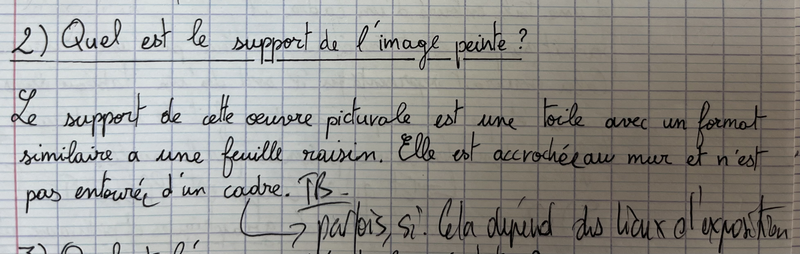 2) Quel est le support de l'image peinte ?
Le support de cette oeuvre picturale est une toile avec un format
similaire a une feuille raisin. Elle est accrochée au mur et n'est
pas entourée d'un cadre. TB
→ parfois, si. Cela dépend des lieux d'exposition
3)